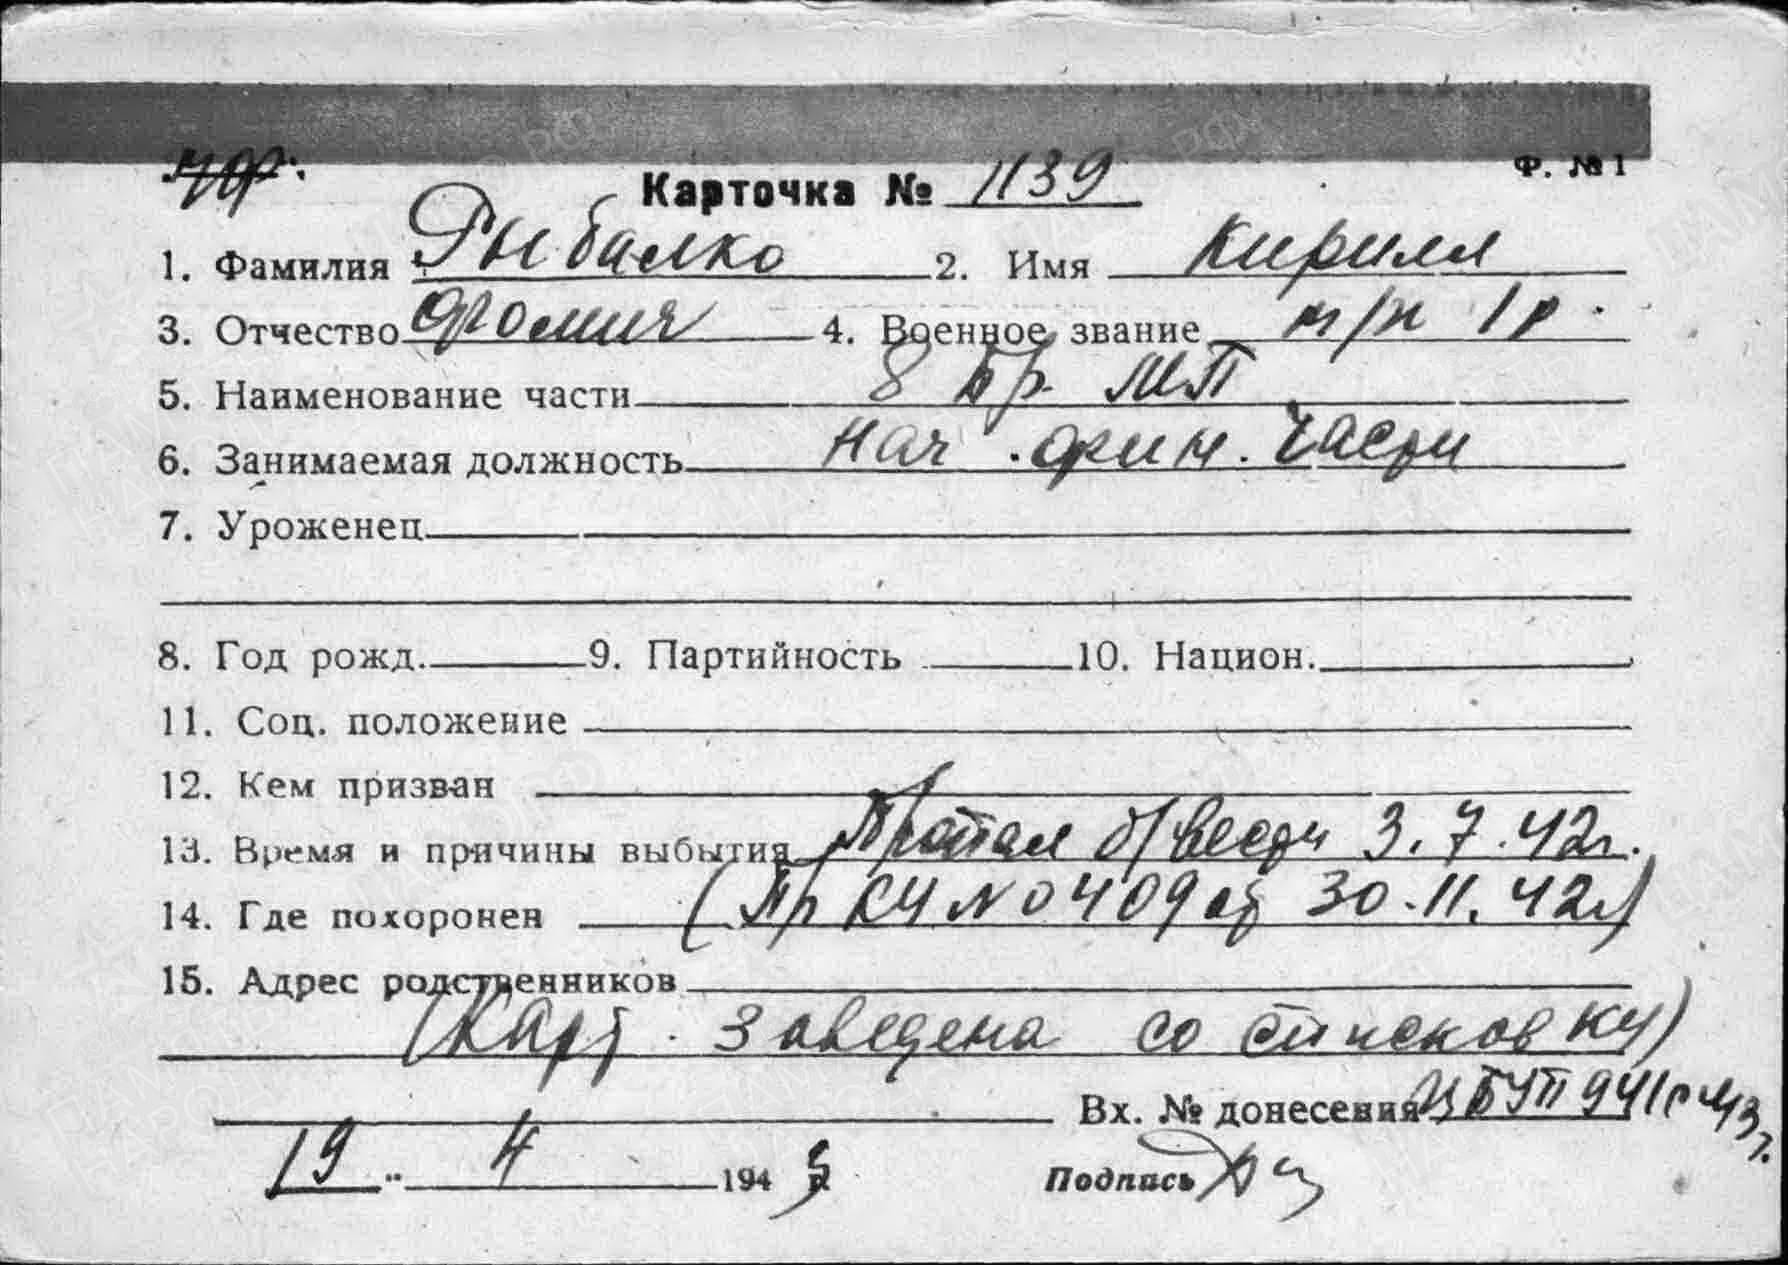 Ф. № 1
Карточка № 1139
1. Фамилия Рыбалко 2. Имя Кирилл
3. Отчество Фомич 4. Военное звание т/н 1 р.
5. Наименование части 8 Бр. МП
6. Занимаемая должность Нач. фин. части
7. Уроженец
8. Год рожд. 9. Партийность 10. Национ.
11. Соц. положение
12. Кем призван
13. Время и причины выбытия Пропал б/вести 3.7.42г.
14. Где похоронен (Пр КУ № 0409 от 30.11.42г)
15. Адрес родственников
(Карт. заведена со списков КУ)
Вх. № донесения 941с 43г.
19 " 4 194 3 Подпись